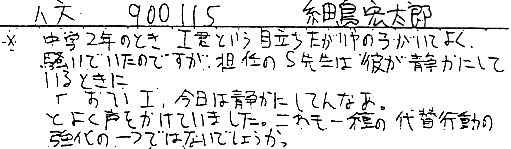 人文 900115 細島宏太郎
※ 中学2年のとき I君という目立ちたがりやの子がいてよく
騒いでいたのですが、担任のS先生は彼が静かにして
いるときに
「おてい I、今日は静かにしてんなぁ。
とよく声をかけていました。これも一種の代替行動の
強化の一つではないでしょうか。